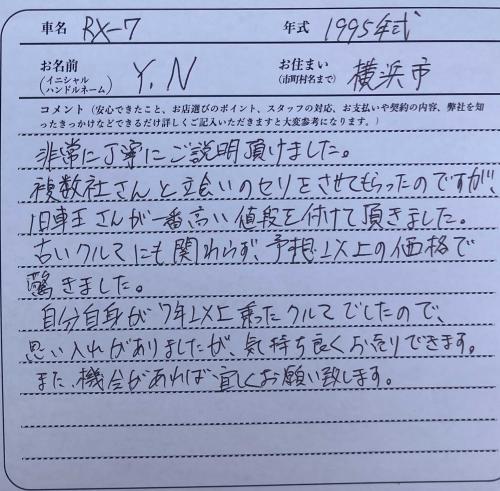 車名 RX-7 年式 1995年式
お名前 (イニシャル ハンドルネーム) Y.N お住まい (市町村名まで) 横浜市
コメント (安心できたこと、お店選びのポイント、スタッフの対応、お支払いや契約の内容、弊社を知
ったきっかけなどできるだけ詳しくご記入いただきますと大変参考になります。)
非常に丁寧にご説明頂けました。
複数社さんと立会いのセリをさせてもらったのですが、
旧車王さんが一番高い値段を付けて頂きました。
古いクルマにも関わらず、予想以上の価格で
驚きました。
自分自身が7年以上乗ったクルマでしたので、
思い入れがありましたが、気持ち良くお売りできます。
また、機会があれば宜しくお願い致します。